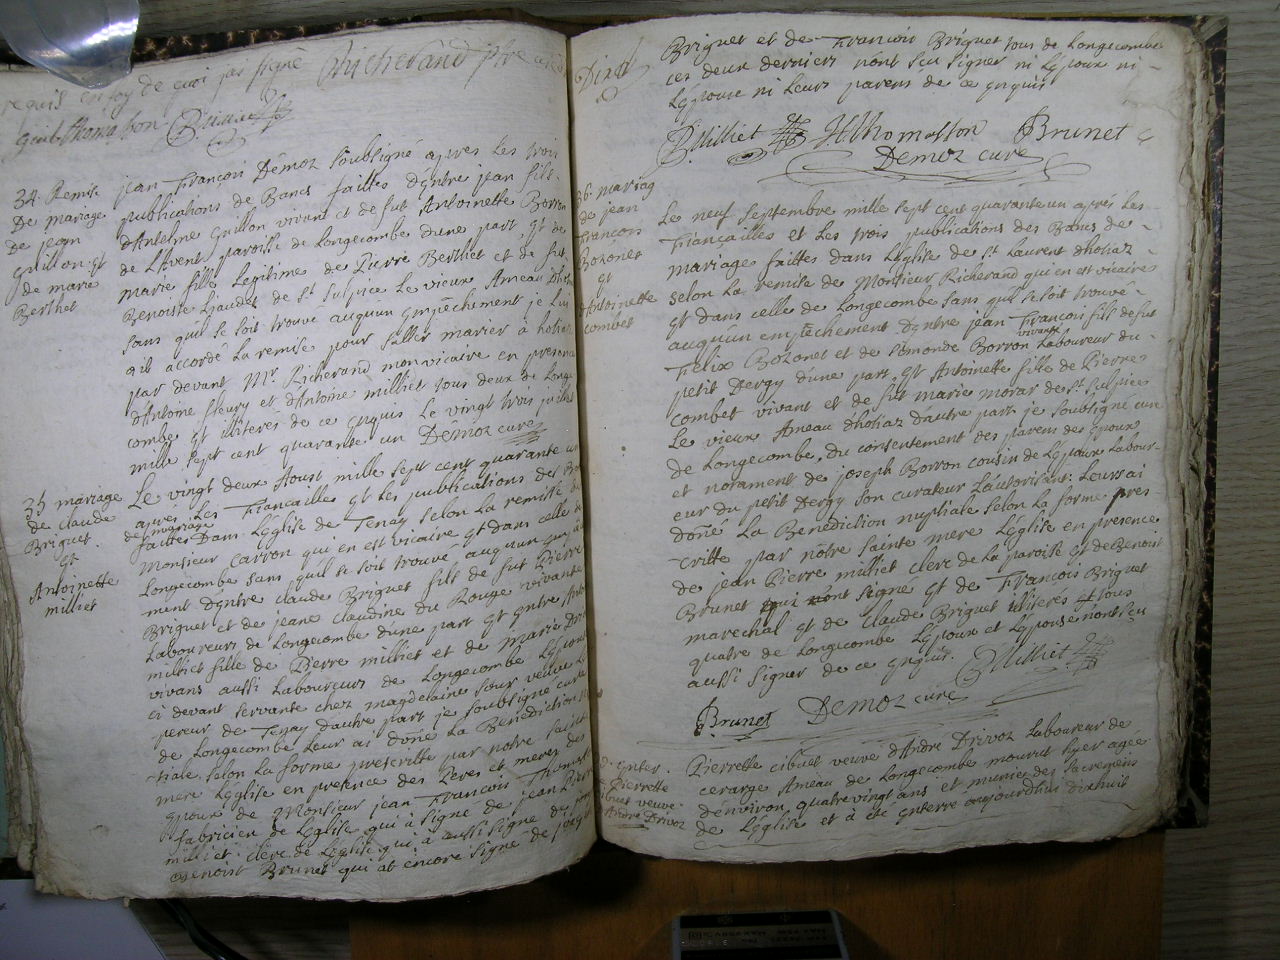 requis en foy de quoi jay signé Richerand ptre
Guil thomasson P. Milliet
34. Remise
De mariage
de jean
guillon et
de marie
Berthet
jean François Démoz soubsigné après Les trois
publications de Bancs faittes d'entre jean fils
d'Antelme guillon vivant et de fut Antoinette Borron
de L'Avent paroisse de Longecombe d'une part et de
marie fille Legitime de Pierre Berthet et de fut
Benoiste Liaudet de St Sulpice Le vieux Ameau
sans qu'il se soit trouvé auqu'un empêchement je Lui
ai accordé La remise pour s'aller marier à
par devant Mr Richerand mon vicaire en presence
d'Antoine fleury et d'Antoine milliet tous deux de Longe
combe et illiterés de ce enquis Le vingt trois
mille sept cent quarante un Démoz curé
35 mariage
de claude
Briguet
et
Antoinette
milliet
Le vingt deux Aoust mille sept cent quarante un
après Les Fiancailles et Les publications des
de mariage
faittes Dans L'Eglise de Tenay selon La remise de
Monsieur carron qui en est vicaire et dans celle de
Longecombe sans qu'il se soit trouvé auqu'un
ment d'entre claude Briguet fils de fut Pierre
Briguet et de jeane claudine du Rouge vivante
Laboureurs de Longecombe d'une part et entre
milliet fille de Pierre milliet et de marie
vivans aussi Laboureurs de Longecombe
ci devant servante chez magdelaine sour veuve
pereur de Tenay d'autre part je soubsigné curé
de Longecombe Leur ai doné La Benediction
tiale selon La forme prescritte par nôtre sainte
mere L'Eglise en presence des Peres et meres des
epoux de Monsieur jean François
fabricien de L'Eglise qui à signé de jean Pierre
milliet clerc de L'Eglise qui à aussi signé de
Benoist Brunet qui at encore signé de
Briguet et de François Briguet tous de Longecombe
ces deux derniers nont seu signer ni L'Epoux ni
L'Epouse ni Leurs parens de ce enquis
P. Milliet J. F. Thomasson Brunet
Démoz curé
36. mariag
de jean
François
Bozonet
et
d'Antoinette
combet
Le neuf Septembre mille sept cent quarante un aprés Les
Fiançailles et Les trois publications des Bancs de
mariage faittes dans L'Eglise de St Laurent
selon La remise de Monsieur Richerand qui en est vicaire
et dans celle de Longecombe sans qu'il se soit trouvé
auqu'un empêchement d'entre jean François fils de fut
vivante
Felix Bozonet et de Esmonde Borron Laboureur du
petit Dergy d'une part et Antoinette fille de Pierre
combet vivant et de fut marie morar de St Sulpice
Le vieux Ameau d'autre part je soubsigné curé
de Longecombe, du consentement des parens des epoux
et notament de joseph Borron cousin de L'Epoux Labour-
eur du petit Dergy son curateur L'autorisant: Leurs ai
doné La Benediction nuptiale selon La forme pres
critte par nôtre sainte mere L'Eglise en presence
de jean Pierre milliet clerc de La paroisse et de Benoist
Brunet qui ont signé et de François Briguet
marechal et de claude Briguet illiterés tous
quatre de Longecombe L'Epoux et L'Epouse n'ont sçu
aussi signer de ce enquis. P. Milliet
Brunet Démoz curé
enter.
Pierrette
cibuet veuve
André Drivoz
Pierrette cibuet veuve d'André Drivoz Laboureur de
cerarge Ameau de Longecombe mourut hyer agée
d'environ quatre vingt ans et munie des sacremens
de L'Eglise et à été enterré aujourd'hui dixhuit